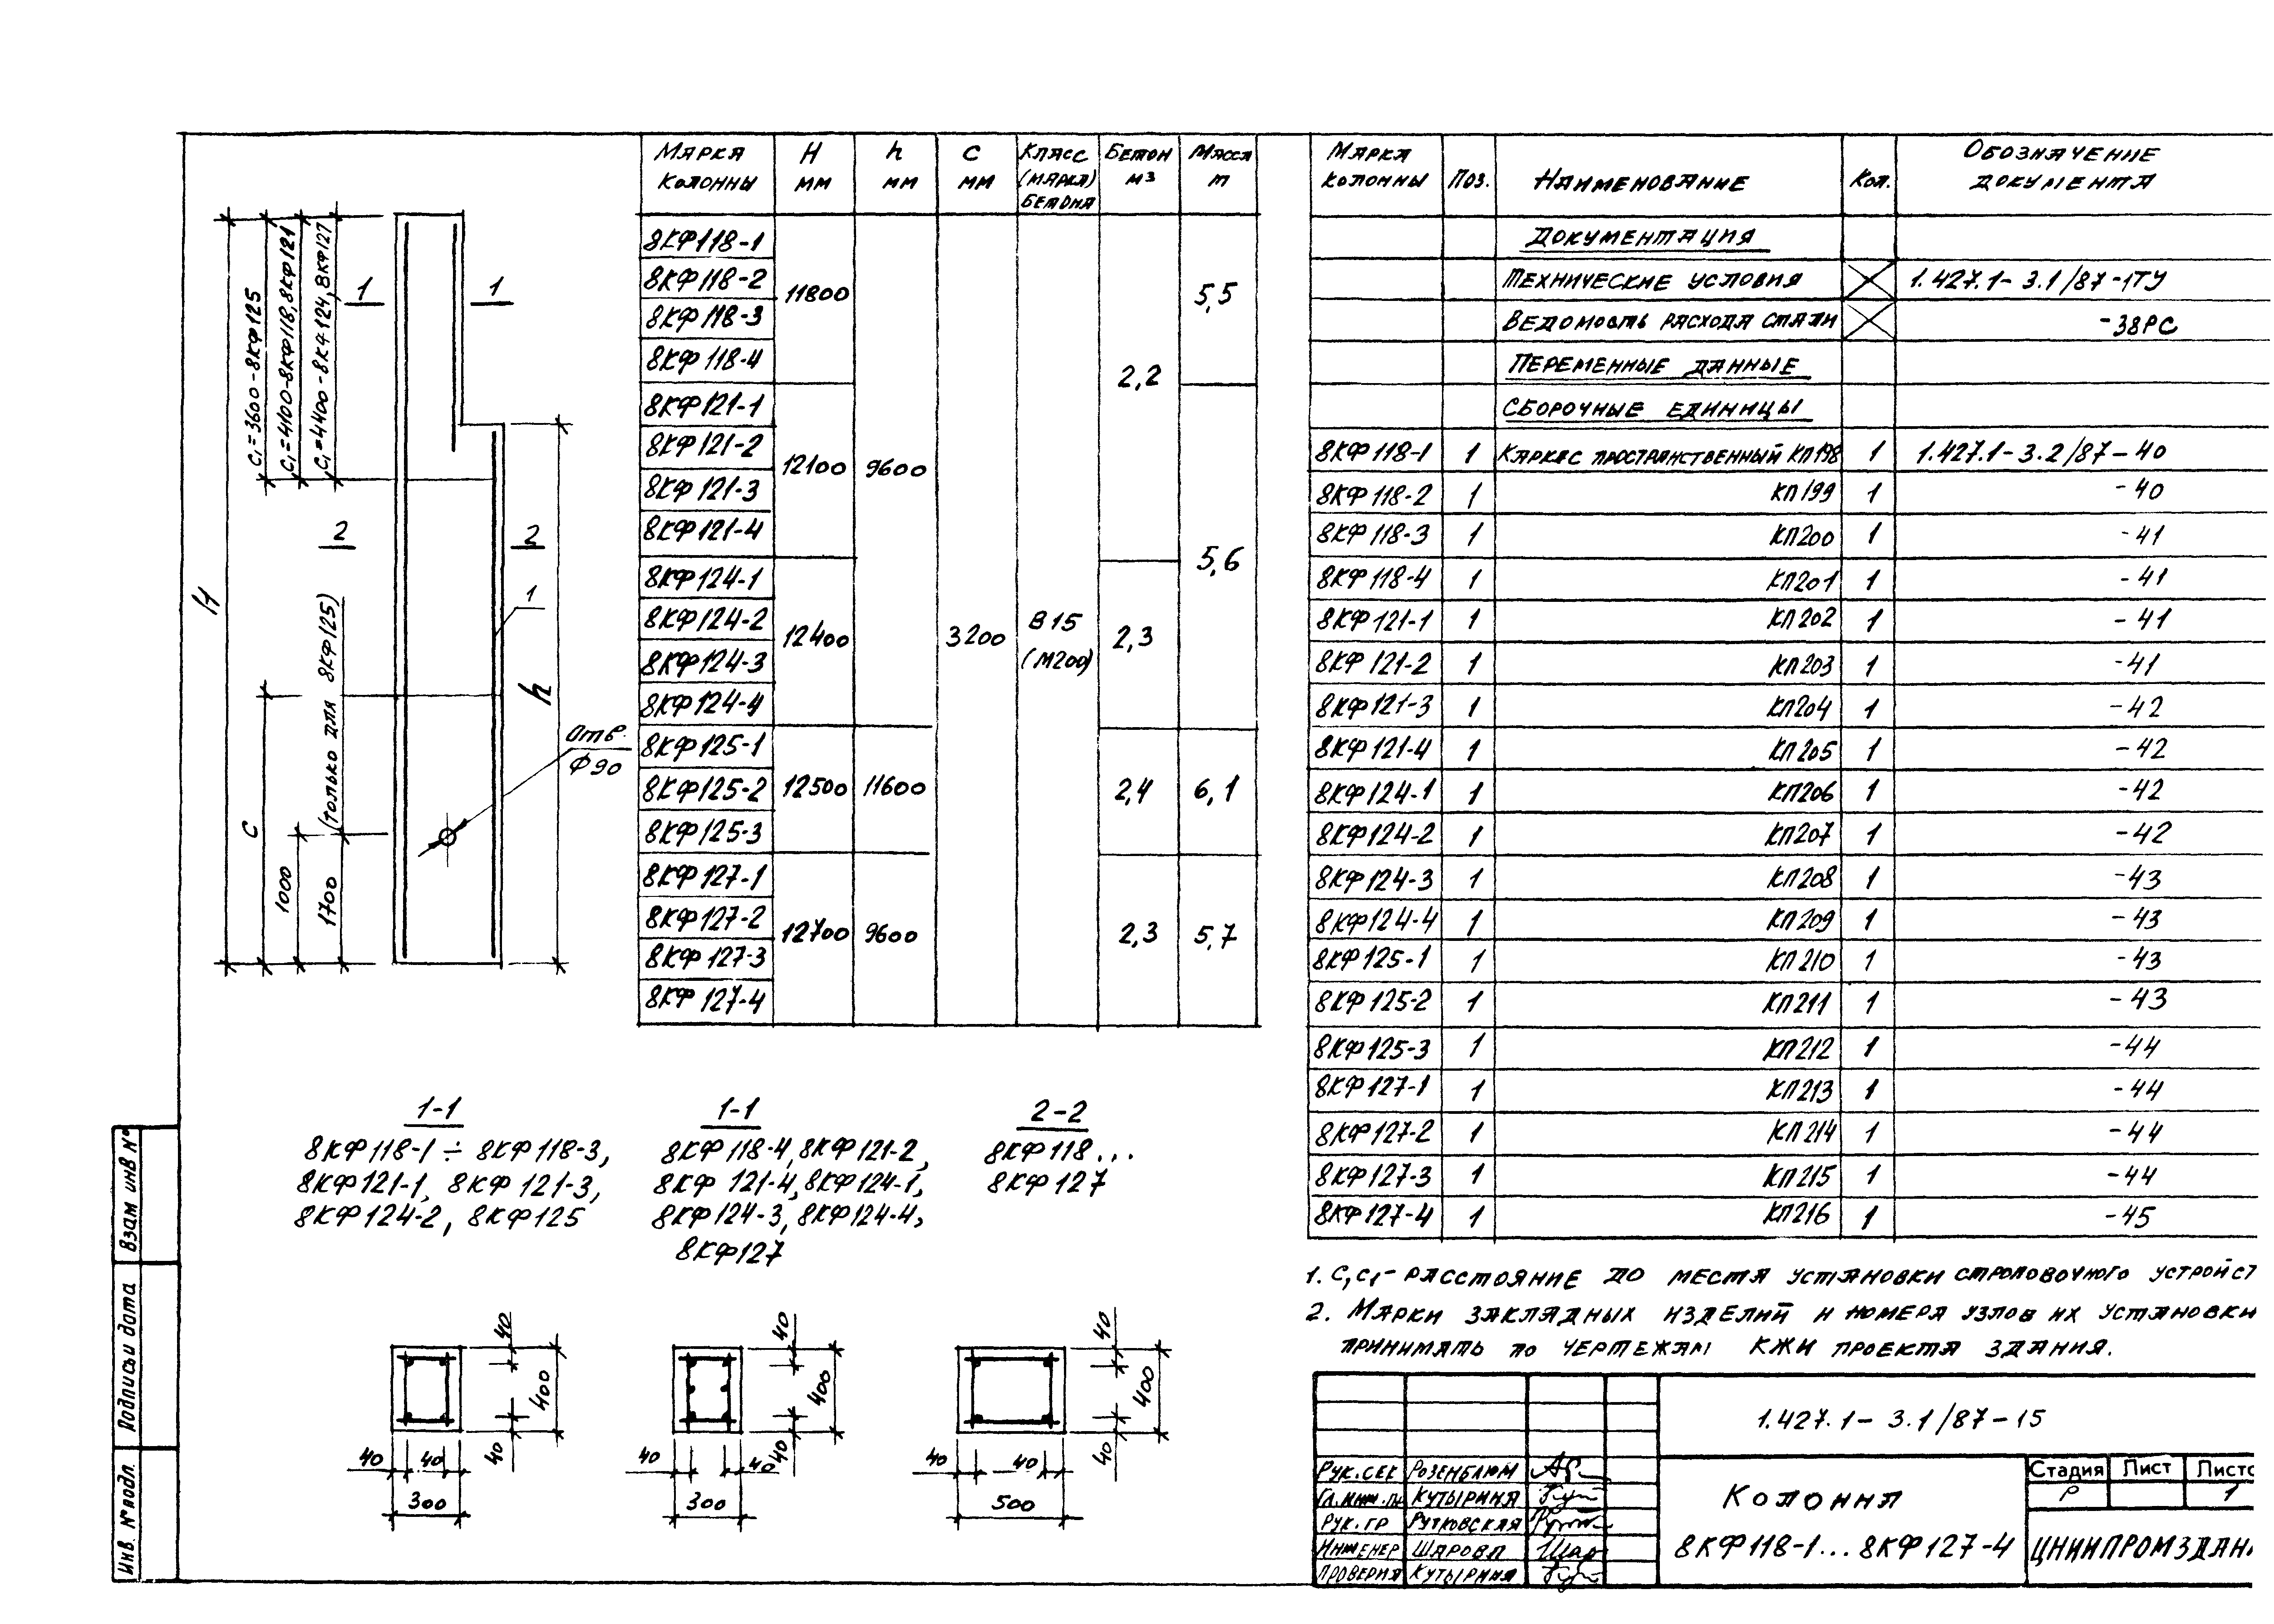 Марка колонны | H мм | h мм | C мм | Класс (марка) бетона | Бетон м³ | Масса т
8КФ118-1
8КФ118-2
8КФ118-3
8КФ118-4
11800
5,5
2,2
8КФ121-1
8КФ121-2
8КФ121-3
8КФ121-4
12100
9600
5,6
8КФ124-1
8КФ124-2
8КФ124-3
8КФ124-4
12400
3200
В15
(М200)
2,3
8КФ125-1
8КФ125-2
8КФ125-3
12500
11600
2,4
6,1
8КФ127-1
8КФ127-2
8КФ127-3
8КФ127-4
12700
9600
2,3
5,7
C₁=3600-8КФ125
C₁=4100-8КФ118,8КФ121
C₁=4400-8КФ124,8КФ127
1 1
2 2
1
H
h
C
1000
1700
(только для 8КФ125)
Отв.
Ф90
Марка колонны | Поз. | Наименование | Кол. | Обозначение документа
Документация
Технические условия 1.427.1-3.1/87-1ТУ
Ведомость расхода стали -38РС
Переменные данные
Сборочные единицы
8КФ118-1 1 Каркас пространственный КП198 1 1.427.1-3.2/87-40
8КФ118-2 1 КП199 1 -40
8КФ118-3 1 КП200 1 -41
8КФ118-4 1 КП201 1 -41
8КФ121-1 1 КП202 1 -41
8КФ121-2 1 КП203 1 -41
8КФ121-3 1 КП204 1 -42
8КФ121-4 1 КП205 1 -42
8КФ124-1 1 КП206 1 -42
8КФ124-2 1 КП207 1 -42
8КФ124-3 1 КП208 1 -43
8КФ124-4 1 КП209 1 -43
8КФ125-1 1 КП210 1 -43
8КФ125-2 1 КП211 1 -43
8КФ125-3 1 КП212 1 -44
8КФ127-1 1 КП213 1 -44
8КФ127-2 1 КП214 1 -44
8КФ127-3 1 КП215 1 -44
8КФ127-4 1 КП216 1 -45
1-1
8КФ118-1÷8КФ118-3,
8КФ121-1, 8КФ121-3,
8КФ124-2, 8КФ125
40
400
40
40 40
300
1-1
8КФ118-4, 8КФ121-2,
8КФ121-4, 8КФ124-1,
8КФ124-3, 8КФ124-4,
8КФ127
40
400
40
40 40
300
2-2
8КФ118...
8КФ127
40
400
40
40 40
500
1. C, C₁- расстояние до места установки строповочного устройст
2. Марки закладных изделий и номера узлов их установки
принимать по чертежам КЖИ проекта здания.
1.427.1-3.1/87-15
Рук.сек Розенблюм
Гл.инж.пр Кутырина
Рук.гр Рутковская
Инженер Шарова
Проверил Кутырина
Колонна
8КФ118-1...8КФ127-4
Стадия Лист Листо
Р 1
ЦНИИПРОМЗДАН
Взам инв №
Подпись и дата
Инв. № подл.